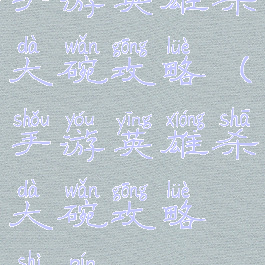 手游英雄杀
dà wǎn gōng lüè
大碗攻略（
shǒu yóu yīng xióng shā
手游英雄杀
dà wǎn gōng lüè
大碗攻略
shì pín